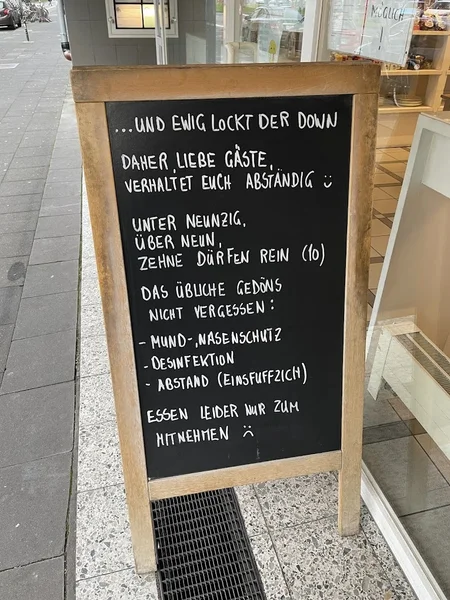 MÖGLICH
...UND EWIG LOCKT DER DOWN
DAHER, LIEBE GÄSTE,
VERHALTET EUCH ABSTÄNDIG :)
UNTER NEUNZIG,
ÜBER NEUN,
ZEHNE DÜRFEN REIN (10)
DAS ÜBLICHE GEDÖNS
NICHT VERGESSEN:
- MUND-, NASENSCHUTZ
- DESINFEKTION
- ABSTAND (EINSFUFFZICH)
ESSEN LEIDER NUR ZUM
MITNEHMEN :(